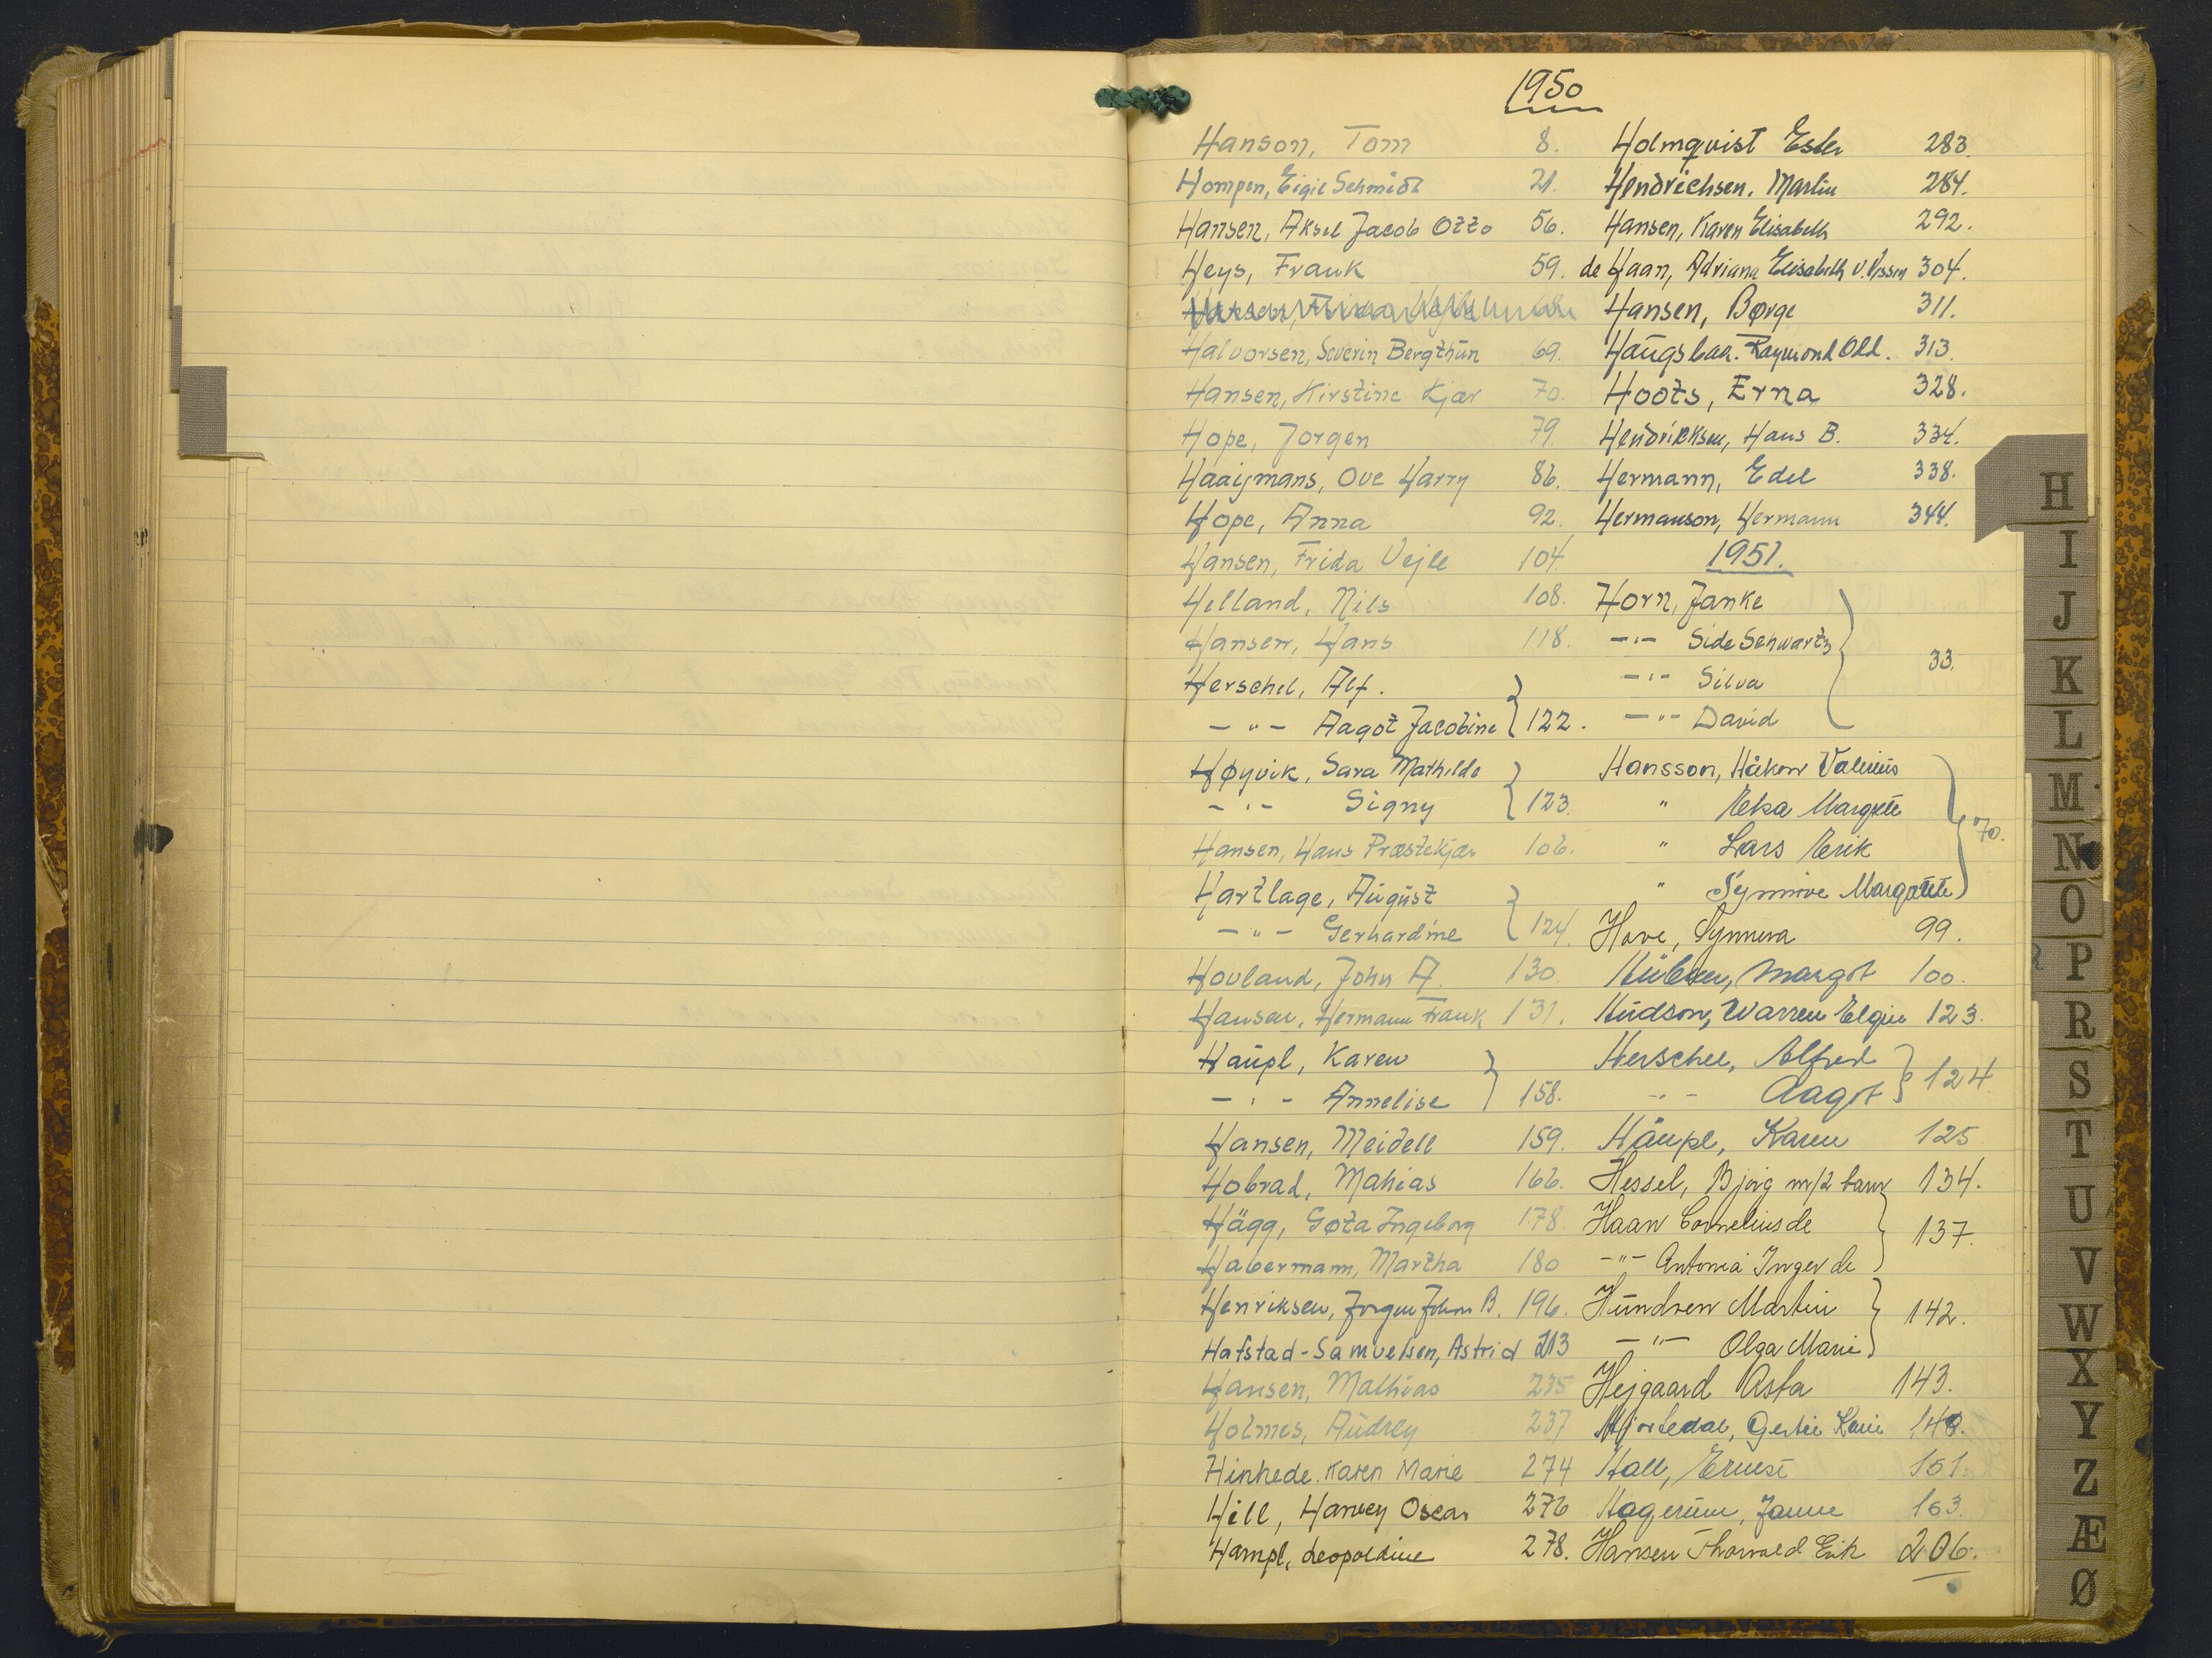 1950
Hanson, Tom 8.
Hompen, Eigil Schmidt 21.
Hansen, Aksel Jacob Otto 56.
Heys, Frank 59.
Halvorsen, Severin Bergthun 69.
Hansen, Kirstine Kjær 70.
Hope, Jorgen 79.
Haaijmans, Ove Harry 86.
Hope, Anna 92.
Hansen, Frida Vejle 104.
Helland, Nils 108.
Hansen, Hans 118.
Herschel, Alf.
-"- Aagot Jacobine 122.
Høyvik, Sara Mathilde
-"- Signy 123.
Hansen, Hans Præstekjær 106.
Hartlage, August
-"- Gerhardine 124.
Hovland, John A. 130.
Hansen, Hermann Frank 131.
Haupl, Karen
-"- Annelise 158.
Hansen, Meidell 159.
Hobrad, Mahias 166.
Hägg, Gøta Ingeborg 178.
Habermann, Martha 180
Henriksen, Jørgen Johan B. 196.
Hafstad-Samuelsen, Astrid 213
Hansen, Mathias 235
Holmes, Audrey 237
Hinhede. Karen Marie 274
Hill, Harvey Oscar 276
Hampl, Leopoldine 278.
Holmqvist Ester 283.
Hendrichsen. Martin 284.
Hansen, Karen Elisabeth 292.
de Haan, Adriana Elisabeth v. 304.
Hansen, Børge 311.
Raymond 313.
Hoots, Erna 328.
Hendricksen, Hans B. 334.
Hermann, Edel 338.
Hermanson, Hermann 344.
1951.
Horn, Janke
-"- Side Schwartz
-"- Silva
-"- David
33.
Hansson, Håkon Valerius
" Margrete
" Lars Erik
" Synnøve Margrethe
70.
Hove, Synneva 99.
Margot 100.
Hudson, Warren Elgin 123.
Herschel, Alfred
-"- Aagot 124
Häupl, Karen 125
Hessel, Bjørg m/2 barn 134.
Haan Cornelius de
-"- Antonia Inger de
137.
Hundven Martin
-"- Olga Marie
142.
Hejgaard Asta 143.
Hjortedal, 148.
Hall, Ernest 151.
Hagerum, Janne 163.
Hansen Thorvald Erik 206.
H
I
J
K
L
M
N
O
P
R
S
T
U
V
W
X
Y
Z
Æ
Ø